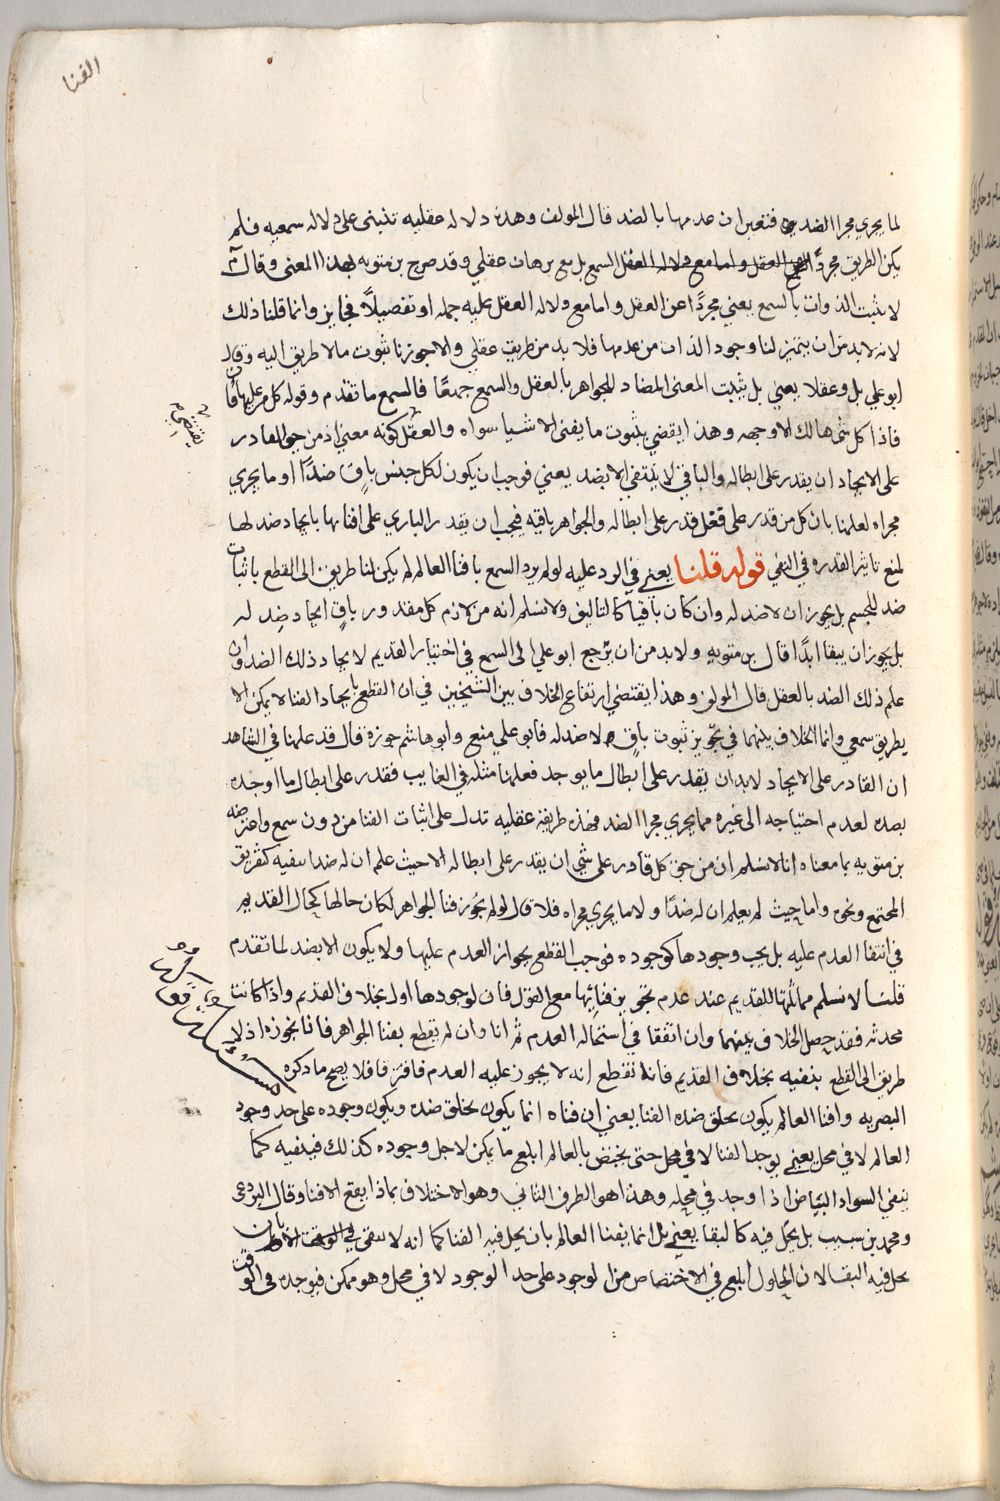 الفنا
لما يجري مجرا الضد فتعين ان عدمها بالضد قال المولف وهذه دلاله عقليه تنبني على دلاله سمعيه فلم
يكن الطريق مجرد العقل واما مع دلاله العقل السمع بل مع برهان عقلي وقد صرح بن متويه بهذا المعنى وقال
لا يثبت الذوات بالسمع يعني مجردًا عن العقل واما مع دلاله العقل عليه جمله او تفصيلًا فجايز وانما قلنا ذلك
لانه لا بد من ان يتميز لنا وجود الذات من عدمها فلا بد من طريق عقلي والا جوزنا ثبوت مالا طريق اليه وقال
ابو علي بل وعقلا يعني بل يثبت المعنى المضاد للجواهر بالعقل والسمع جمعًا فالسمع ما تقدم وقوله كل من عليها فان
فاذا كل شي هالك الا وجهه وهذا يقضي بثبوت ما يفنى الاشيا سواه والعقل كونه معنى اذ من حق القادر
يقتضي
على الايجاد ان يقدر على ابطاله والباقي لا ينتفي الا بضد يعني فوجب ان يكون لكل جنس باقٍ ضدًا او ما يجري
مجراه لعلمنا بان كل من قدر على فعل قدر على ابطاله والجواهر باقيه فيجب ان يقدر الباري على افنائها بايجاد ضد لها
لمنع تاثير القدره في النفي قوله قلنا يعني في الرد عليه لو لم يرد السمع بافنا العالم لم يكن لنا طريق الى القطع باثبات
ضد للجسم بل يجوز ان لا ضد له وان كان باقيا كالتاليف ولا نسلم انه من لازم كل مقدور باقٍ ايجاد ضد له
بل يجوز ان يبقا ابدًا قال بن متويه ولا بد من ان يرجع ابو علي الى السمع في اختيار القديم لايجاد ذلك الضد وان
علم ذلك الضد بالعقل قال المولف وهذا يقتضي ارتفاع الخلاف بين الشيخين في ان القطع بايجاد الفنا لا يمكن الا
بطريق سمعي وانما الخلاف بينهما في تجويز ثبوت باقٍ لا ضد له فابو علي منع وابو هاشم جوزه قال قد علمنا في الشاهد
ان القادر على الايجاد لا بد ان يقدر على ابطال ما يوجد فعلمنا مثله في الغايب فقدر على ابطال ما اوجده
بضده لعدم احتياجه الى غيره مما يجري مجرا الضد فهذه طريقه عقليه تدل على اثبات الفنا من دون سمع واعترضه
بن متويه بما معناه انا لا نسلم ان من حق كل قادر على شي ان يقدر على ابطاله الا حيث علم ان له ضدا ينفيه كتفريق
المجتمع ونحوه واما حيث لم يعلم ان له ضدًا ولا ما يجري مجراه فلا قال لو لم يجوز فنا الجواهر لكان حالها كحال القديم
في انتفا العدم عليه بل يجب وجودها كوجوده فوجب القطع بجواز العدم عليها ولا يكون الا بضد لما تقدم
قلنا لا نسلم مماثلتها للقديم عند عدم تجويز فنائها مع القول فان لوجودها اول بخلاف القديم واذا كانت
محدثه فقد حصل الخلاف بينهما وان اتفقا في استحاله العدم ثم انا وان لم نقطع بفنا الجواهر فانا نجوزه اذ لا
طريق الى القطع بنفيه بخلاف القديم فانا نقطع انه لا يجوز عليه العدم فافترقا فلا يصح ما ذكره
البصريه وافنا العالم يكون بخلق ضده الفنا يعني ان فناه انما يكون بخلق ضده ويكون وجوده على حد وجود
العالم لا في محل يعني يوجد الفنا لا في محل حتى يختص بالعالم ابلغ ما يمكن لاجل وجوده كذلك فينفيه كما
ينفي السواد البياض اذا وجد في محله وهذا هو الطرف الثاني وهو الاختلاف بماذا يقع الافنا وقال البردعي
ومحمد بن شبيب بل يحل فيه كالبقا يعني بل انما يفنا العالم بان يحل فيه الفنا كما انه لا يبقى في الوقت الا بان
يحل فيه البقا لان الحلول ابلغ في الاختصاص من الوجود على حد الوجود لا في محل وهو ممكن فيوجده في الوقت